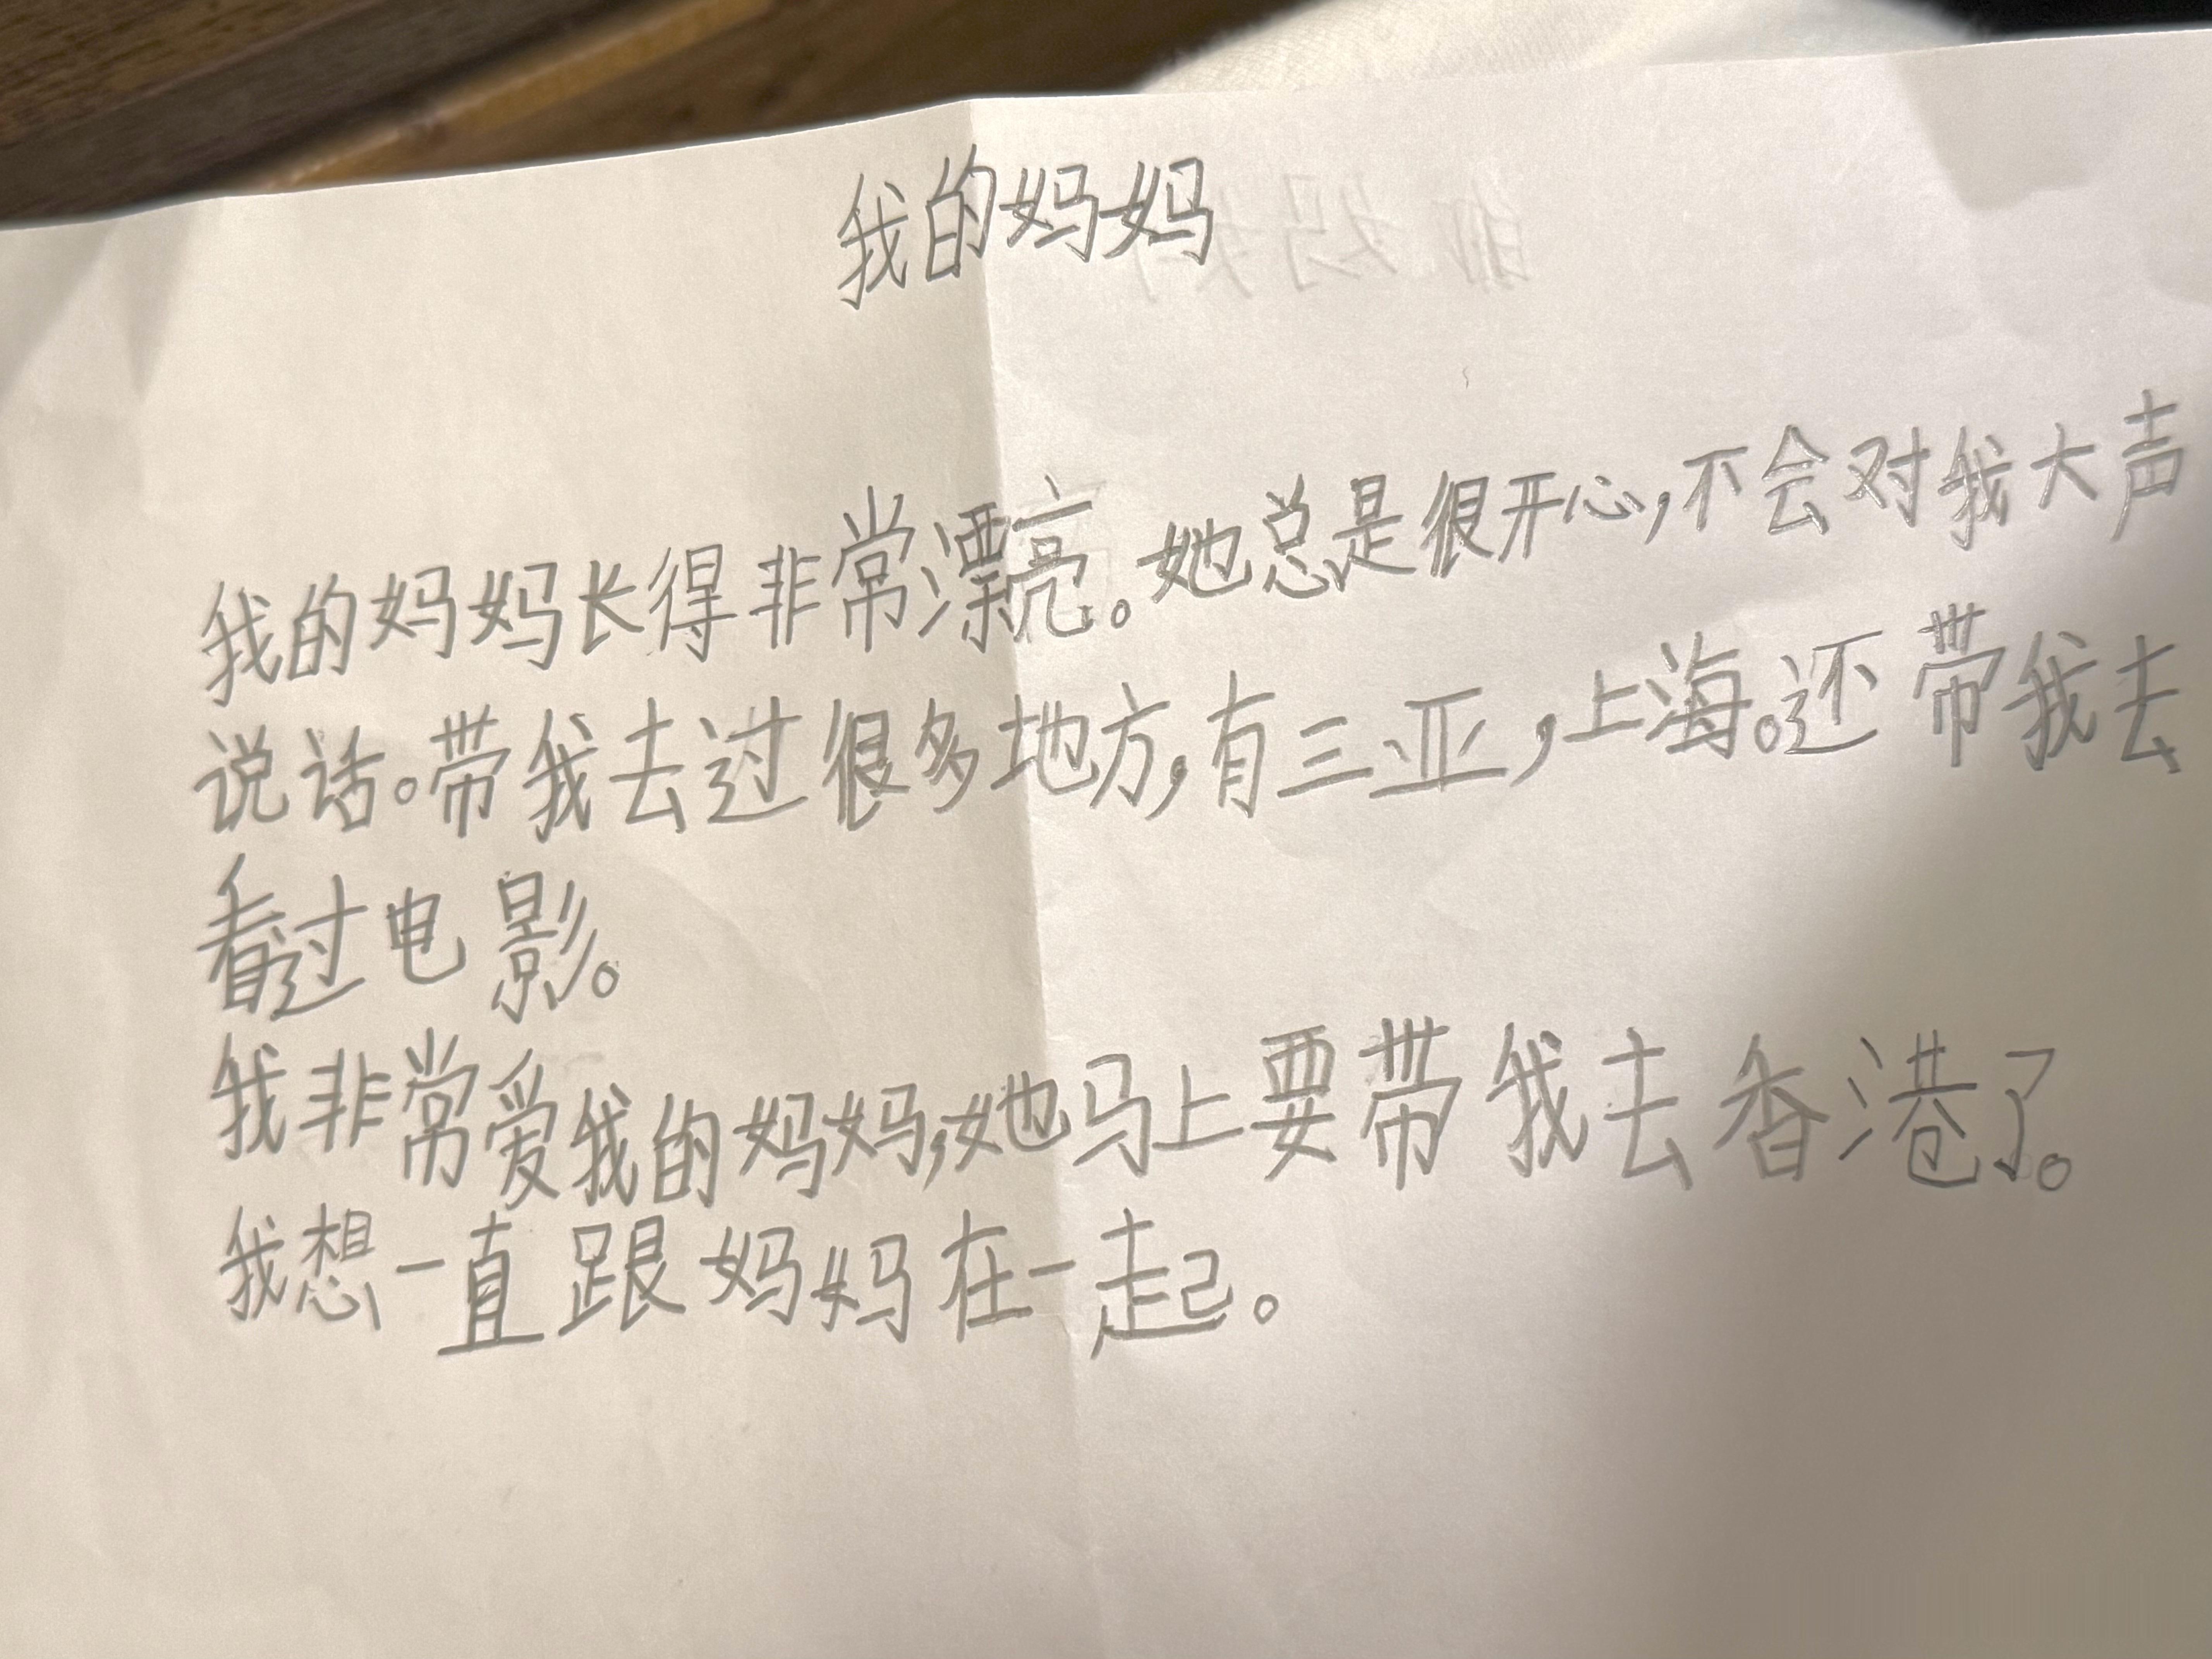 我的妈妈
我的妈妈长得非常漂亮。她总是很开心,不会对我大声
说话。带我去过很多地方,有三亚,上海。还带我去
看过电影。
我非常爱我的妈妈,她马上要带我去香港了。
我想一直跟妈妈在一起。